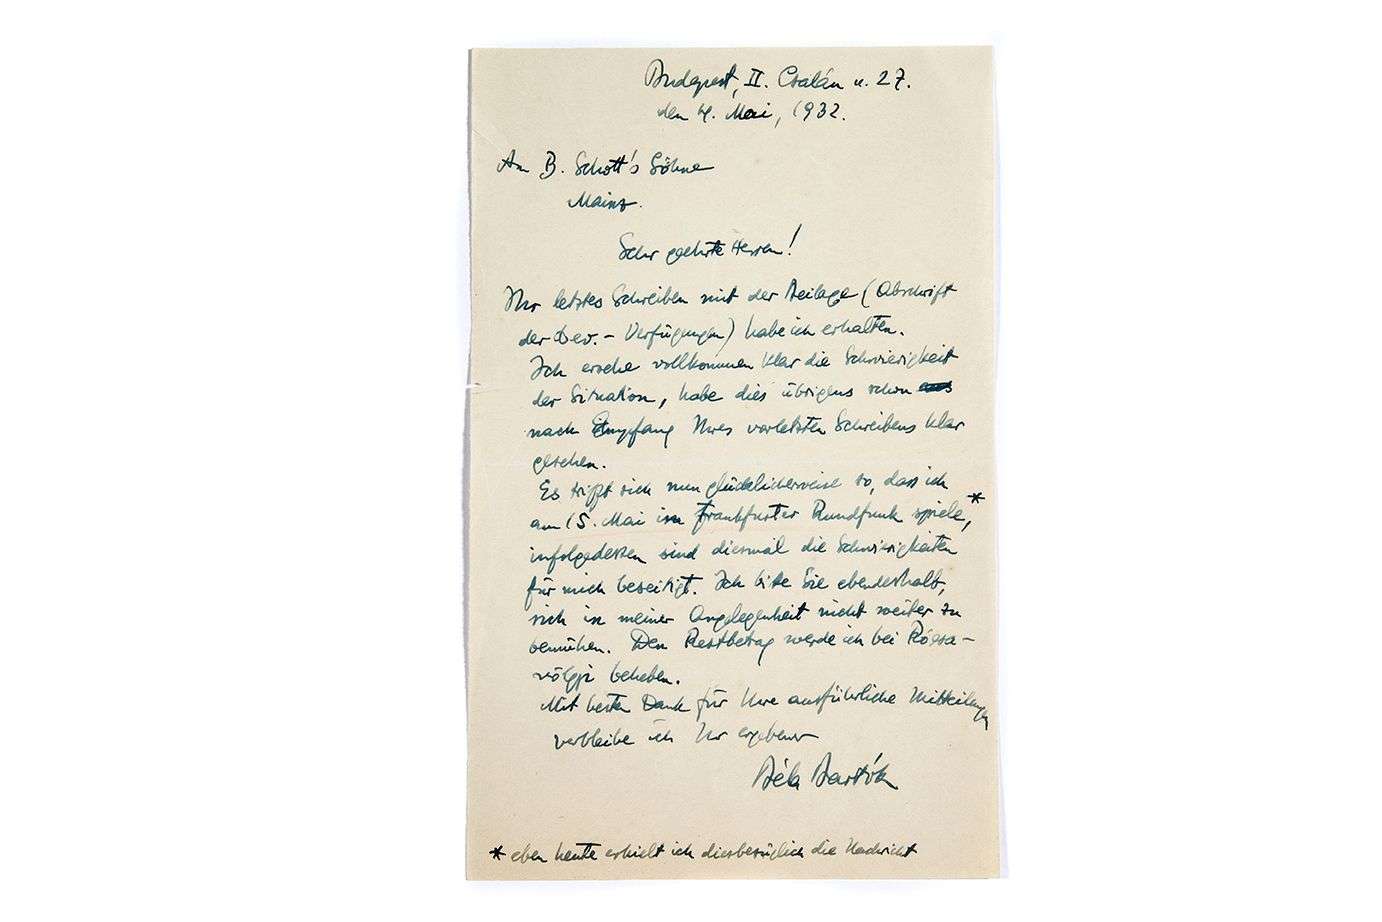 Budapest, II. Csalán u. 27.
den 4. Mai, 1932.
An B. Schott's Söhne
Mainz.
Sehr geehrte Herren!
Ihr letztes Schreiben mit der Beilage (Abschrift
der Dev.- Verfügungen) habe ich erhalten.
Ich ersehe vollkommen klar die Schwierigkeit
der Situation, habe dies übrigens schon
nach Empfang Ihres vorletzten Schreibens klar
gesehen.
Es trifft sich nun glücklicherweise so, dass ich
am 15. Mai im Frankfurter Rundfunk spiele,*
infolgedessen sind diesmal die Schwierigkeiten
für mich beseitigt. Ich bitte Sie ebendeshalb,
sich in meiner Angelegenheit nicht weiter zu
bemühen. Den Restbetrag werde ich bei Rózsa-
völgyi beheben.
Mit besten Dank für Ihre ausführliche Mitteilungen
verbleibe ich Ihr ergebener
Béla Bartók
* eben heute erhielt ich diesbezüglich die Nachricht